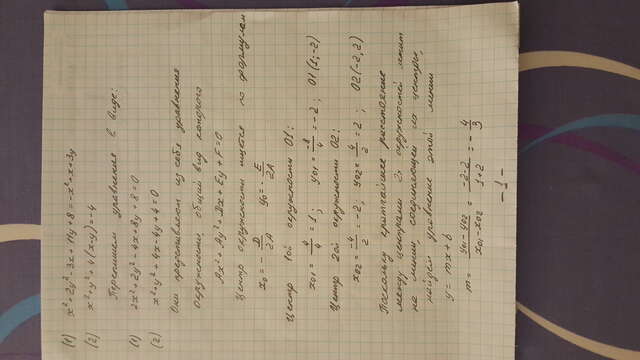 (1) x² + 2y² - 3x + 11y + 8 = -x² + x + 3y
(2) x² + y² + 4(x-y) = -4
Перепишем уравнения в виде:
(1) 2x² + 2y² - 4x + 8y + 8 = 0
(2) x² + y² + 4x - 4y + 4 = 0
Они представляют из себя уравнения
окружности, общий вид которого
Ax² + Ay² + Dx + Ey + F = 0
Центр окружности ищется по формулам
x₀ = - D/2A y₀ = - E/2A
Центр 1ой окружности O1:
x₀₁ = 4/4 = 1; y₀₁ = -8/4 = -2; O1(1;-2)
Центр 2ой окружности O2:
x₀₂ = -4/2 = -2; y₀₂ = 4/2 = 2; O2(-2,2)
Поскольку кратчайшее расстояние
между центрами 2х окружностей лежит
на линии, соединяющей их центры,
найдем уравнение этой линии
y = mx + b
m = y₀₁ - y₀₂/x₀₁ - x₀₂ = -2-2/1+2 = - 4/3
- 1 -